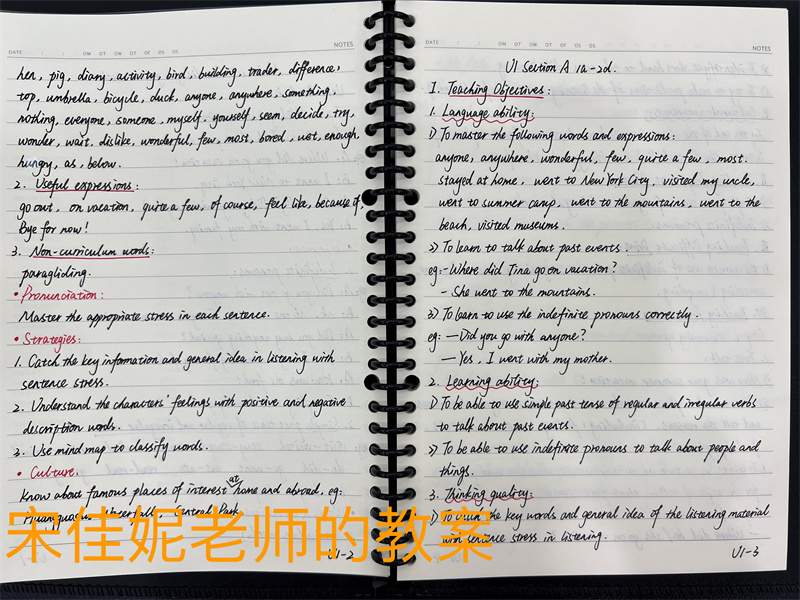 DATE / / OM OT OW OT OF OS OS NOTES
hen, pig, diary, activity, bird, building, trader, difference,
top, umbrella, bicycle, duck, anyone, anywhere, something,
nothing, everyone, someone, myself, yourself, seem, decide, try,
wonder, wait, dislike, wonderful, few, most, bored, wet, enough,
hungry, as, below.
2. Useful expressions:
go out, on vacation, quite a few, of course, feel like, because of,
Bye for now!
3. Non-curriculum words:
paragliding.
• Pronunciation:
Master the appropriate stress in each sentence.
• Strategies:
1. Catch the key information and general idea in listening with
sentence stress.
2. Understand the characters' feelings with positive and negative
description words.
3. Use mind map to classify words.
• Culture.
Know about famous places of interest at home and abroad, eg:
Central Park
U1-2
DATE / / OM OT OW OT OF OS OS NOTES
U1 Section A 1a-2d.
I. Teaching Objectives:
1. Language ability:
1) To master the following words and expressions:
anyone, anywhere, wonderful, few, quite a few, most.
stayed at home, went to New York City, visited my uncle,
went to summer camp, went to the mountains, went to the
beach, visited museums.
2) To learn to talk about past events.
eg: - Where did Tina go on vacation?
- She went to the mountains.
3) To learn to use the indefinite pronouns correctly.
eg: — Did you go with anyone?
— Yes, I went with my mother.
2. Learning ability:
1) To be able to use simple past tense of regular and irregular verbs
to talk about past events.
2) To be able to use indefinite pronouns to talk about people and
things.
3. Thinking quality:
1) To the key words and general idea of the listening material
with sentence stress in listening.
U1-3
宋佳妮老师的教案